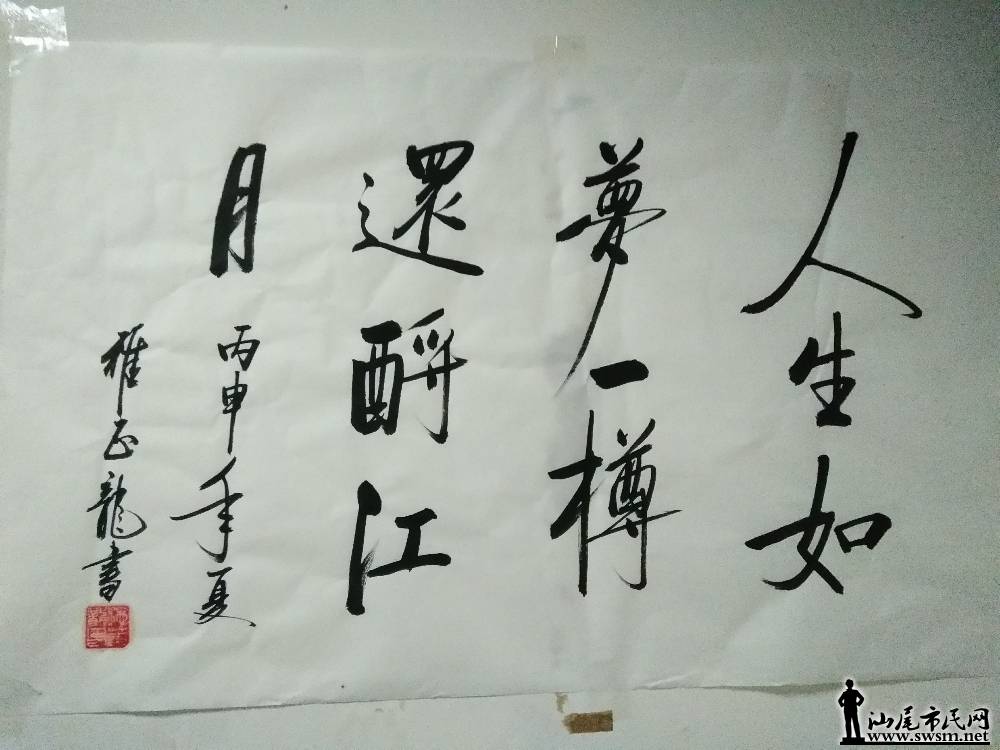 人生如
夢一樽
還酹江
月
丙申年夏
正龍書
汕尾市民网
www.swsm.net